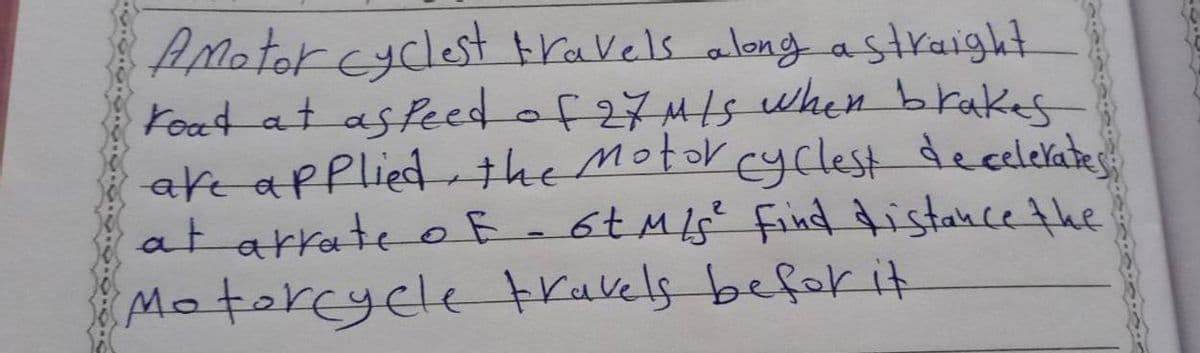 A Motor cyclest travels along a straight
road at aspeed of 27 M/s when brakes
are applied, the Motor cyclest decelerates
at arrate of - 6t M/s² find distance the
Motorcycle travels befor it